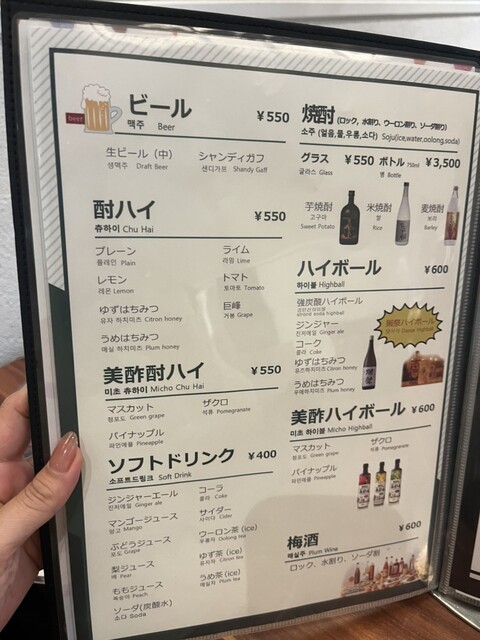 beer
ビール ¥550
맥주 Beer
生ビール（中）
생맥주 Draft Beer
シャンディガフ
샌디가프 Shandy Gaff
酎ハイ ¥550
츄하이 Chu Hai
プレーン
플레인 Plain
ライム
라임 Lime
レモン
레몬 Lemon
トマト
토마토 Tomato
ゆずはちみつ
유자 하지미츠 Citron honey
巨峰
거봉 Grape
うめはちみつ
매실 하지미츠 Plum honey
美酢酎ハイ ¥550
미초 츄하이 Micho Chu Hai
マスカット
청포도 Green grape
ザクロ
석류 Pomegranate
パイナップル
파인애플 Pineapple
ソフトドリンク ¥400
소프트드링크 Soft Drink
ジンジャーエール
진저에일 Ginger ale
コーラ
콜라 Coke
マンゴージュース
망고 Mango
サイダー
사이다 Cider
ぶどうジュース
포도 Grape
ウーロン茶 (ice)
우롱차 Oolong tea
梨ジュース
배 Pear
ゆず茶 (ice)
유자차 Citron tea
ももジュース
복숭아 Peach
うめ茶 (ice)
매실차 Plum tea
ソーダ(炭酸水)
소다 Soda
焼酎 (ロック, 水割り, ウーロン割り, ソーダ割り)
소주 (얼음,물,우롱,소다) Soju(ice,water,oolong,soda)
グラス ¥550 ボトル 750ml ¥3,500
글라스 Glass 병 Bottle
芋焼酎
고구마
Sweet Potato
米焼酎
쌀
Rice
麦焼酎
보리
Barley
ハイボール ¥600
하이볼 Highball
強炭酸ハイボール
strong soda highball
ジンジャー
진저에일 Ginger ale
コーク
콜라 Coke
ゆずはちみつ
유즈하지미츠 Citron honey
うめはちみつ
우메하지미츠 Plum honey
美酢ハイボール ¥600
미초 하이볼 Micho Highball
マスカット
청포도 Green grape
ザクロ
석류 Pomegranate
パイナップル
파인애플 Pineapple
梅酒 ¥600
매실주 Plum Wine
ロック、水割り、ソーダ割